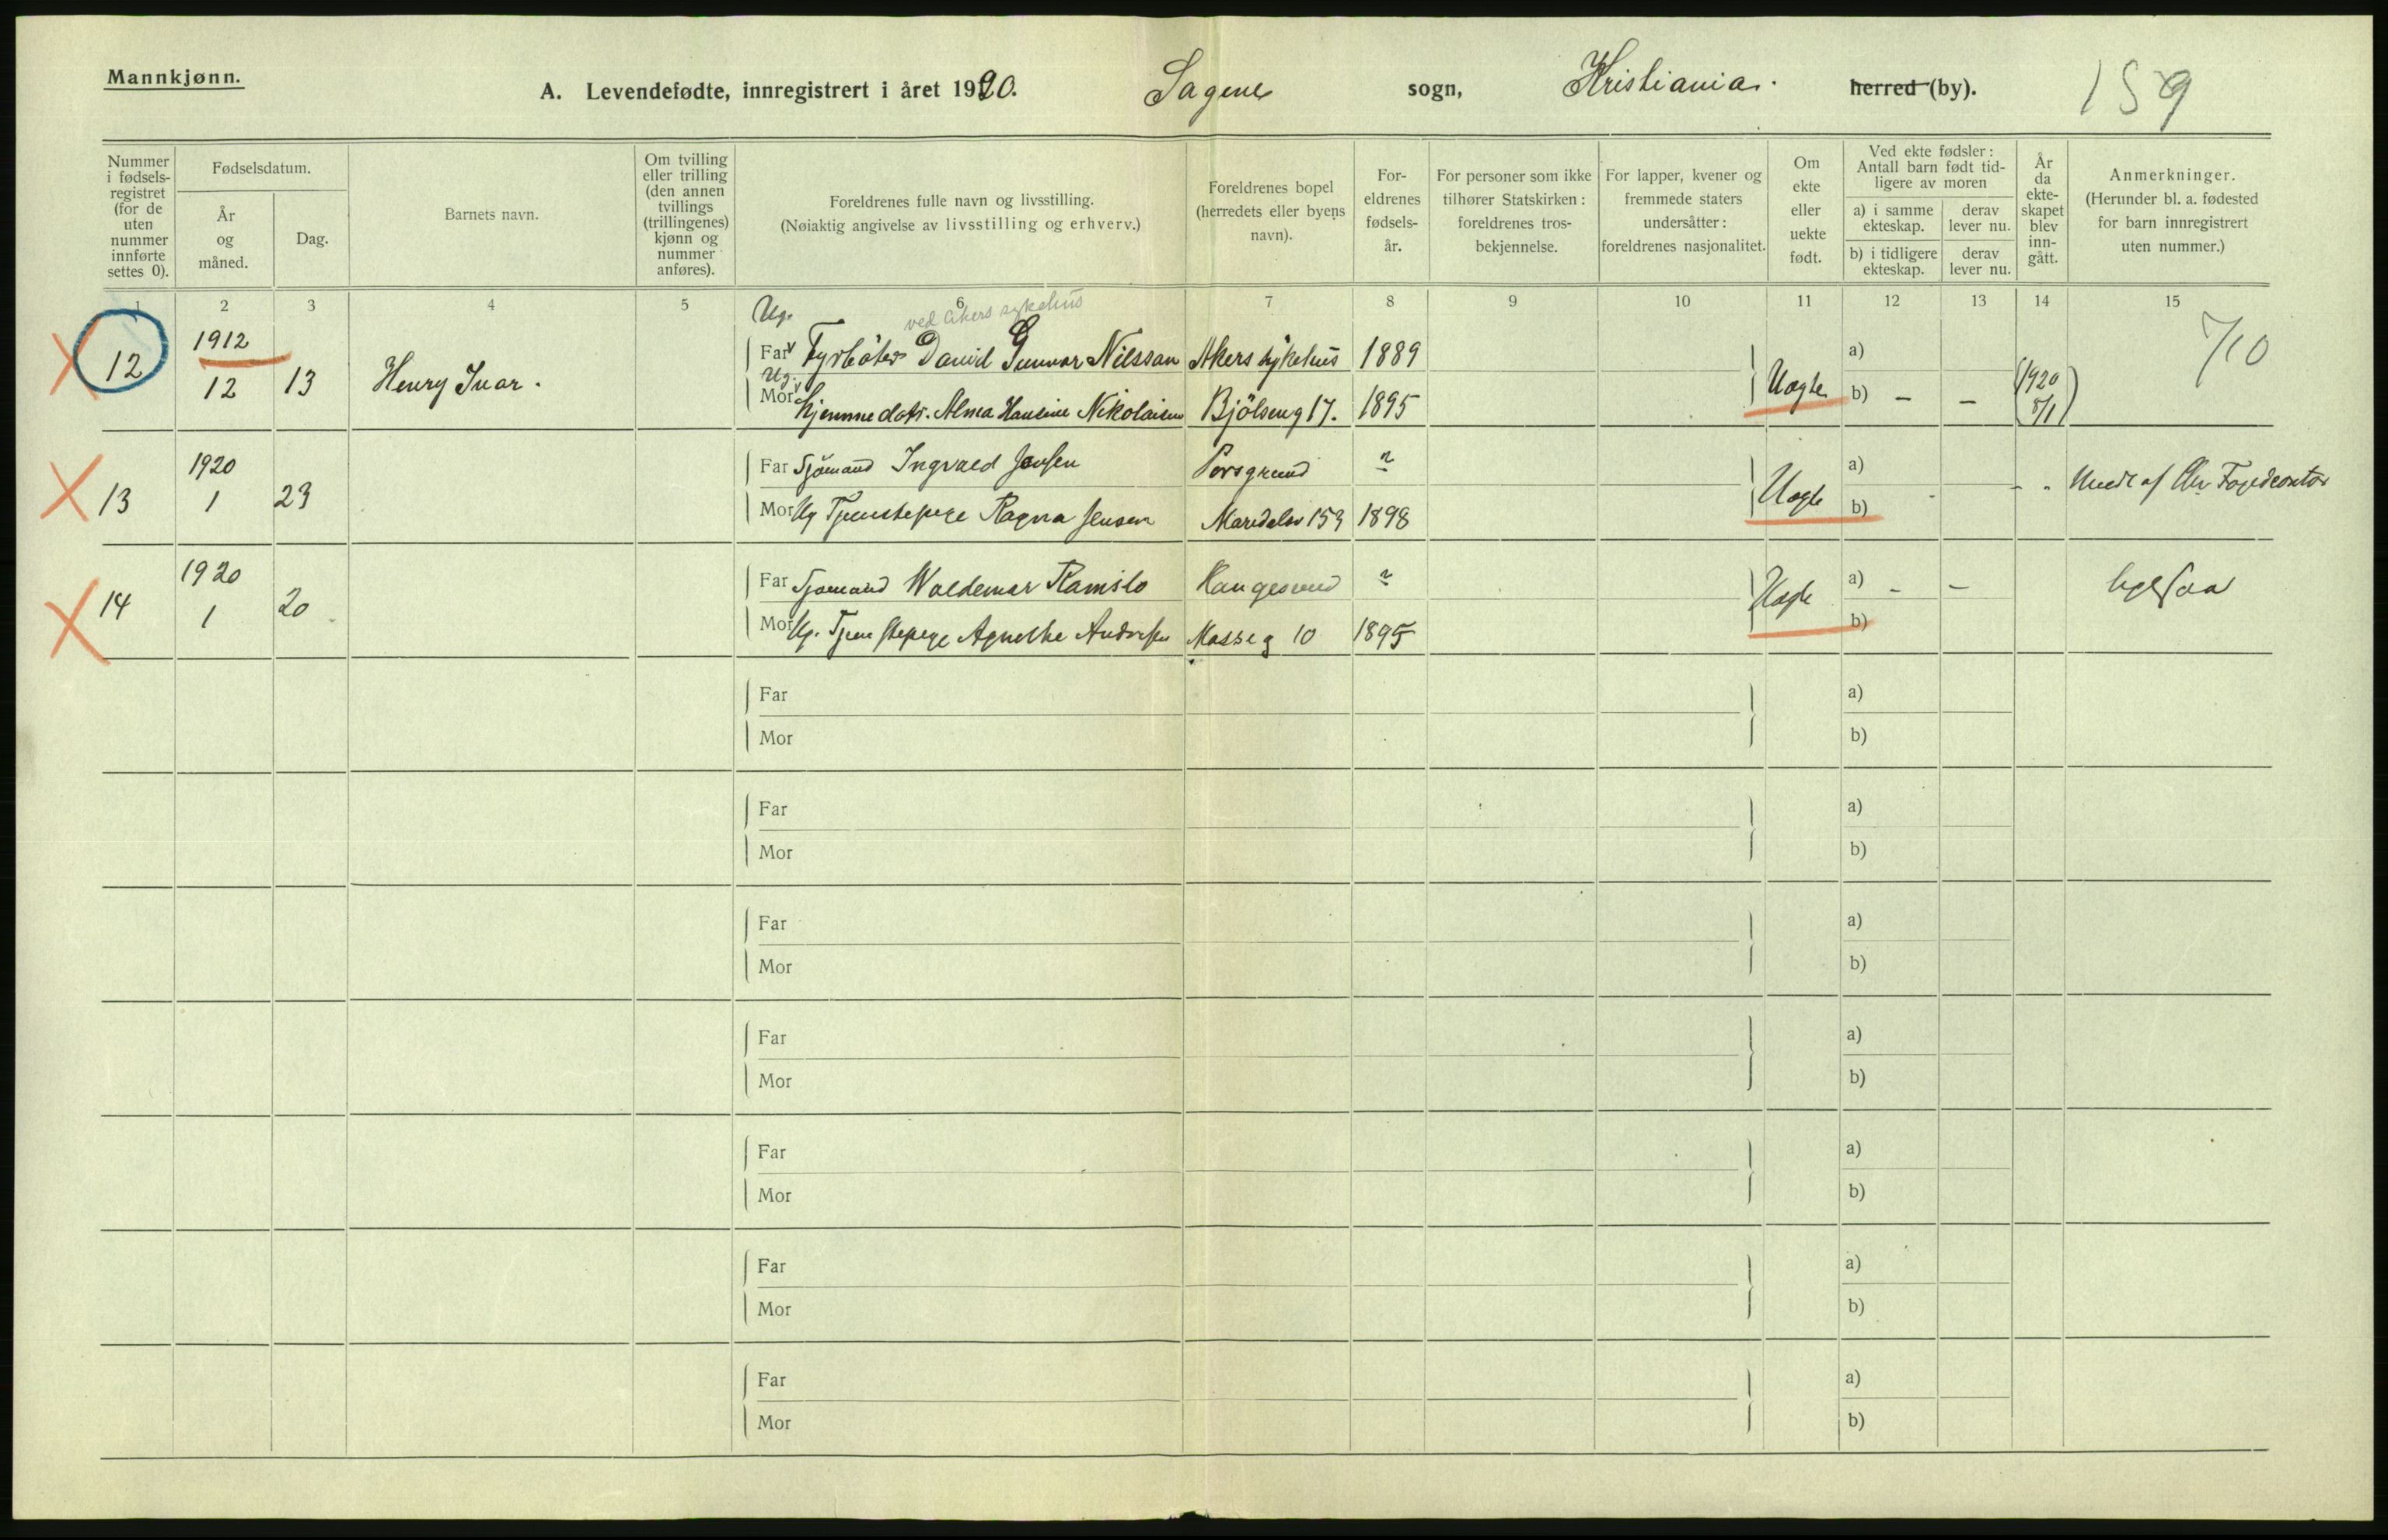 Mannkjønn.
A. Levendefødte, innregistrert i året 1920. Sagene sogn, Kristiania. herred (by). 159
Nummer i fødsels-registret (for de uten nummer innførte settes 0).
Fødselsdatum.
År og måned.
Dag.
Barnets navn.
Om tvilling eller trilling (den annen tvillings (trillingenes) kjønn og nummer anføres).
Foreldrenes fulle navn og livsstilling.
(Nøiaktig angivelse av livsstilling og erhverv.)
Foreldrenes bopel (herredets eller byens navn).
For-eldrenes fødsels-år.
For personer som ikke tilhører Statskirken: foreldrenes tros-bekjennelse.
For lapper, kvener og fremmede staters undersåtter: foreldrenes nasjonalitet.
Om ekte eller uekte født.
Ved ekte fødsler: Antall barn født tid-ligere av moren
a) i samme ekteskap. derav lever nu.
b) i tidligere ekteskap. derav lever nu.
År da ekte-skapet blev inn-gått.
Anmerkninger.
(Herunder bl. a. fødested for barn innregistrert uten nummer.)
1 2 3 4 5 6 7 8 9 10 11 12 13 14 15
Ug. ved Akers sykehus
12 1912 12 13 Henry Ivar.
Far Fyrböter David Gunnar Nilsson Akers sykehus 1889 a) 7/10
Ug.
Mor Hjemmedatr. Alma Hansine Nikolaisen Bjölseng 17. 1895 Uegte b) - - (1920 8/1)
13 1920 1 23
Far Sjömand Ingvald Jensen Porsgrund " a)
Mor Ug Tjenestepige Ragna Jensen Maridalsv 159 1898 Uegte b) - - Medt af Chr Fogedcontor
14 1920 1 20
Far Sjömand Waldemar Ramslo Haugesund " a) - -
Mor Ug. Tjenestepige Agnethe Andersen Mosseg 10 1895 Uegte b) ligesaa
Far a)
Mor b)
Far a)
Mor b)
Far a)
Mor b)
Far a)
Mor b)
Far a)
Mor b)
Far a)
Mor b)
Far a)
Mor b)